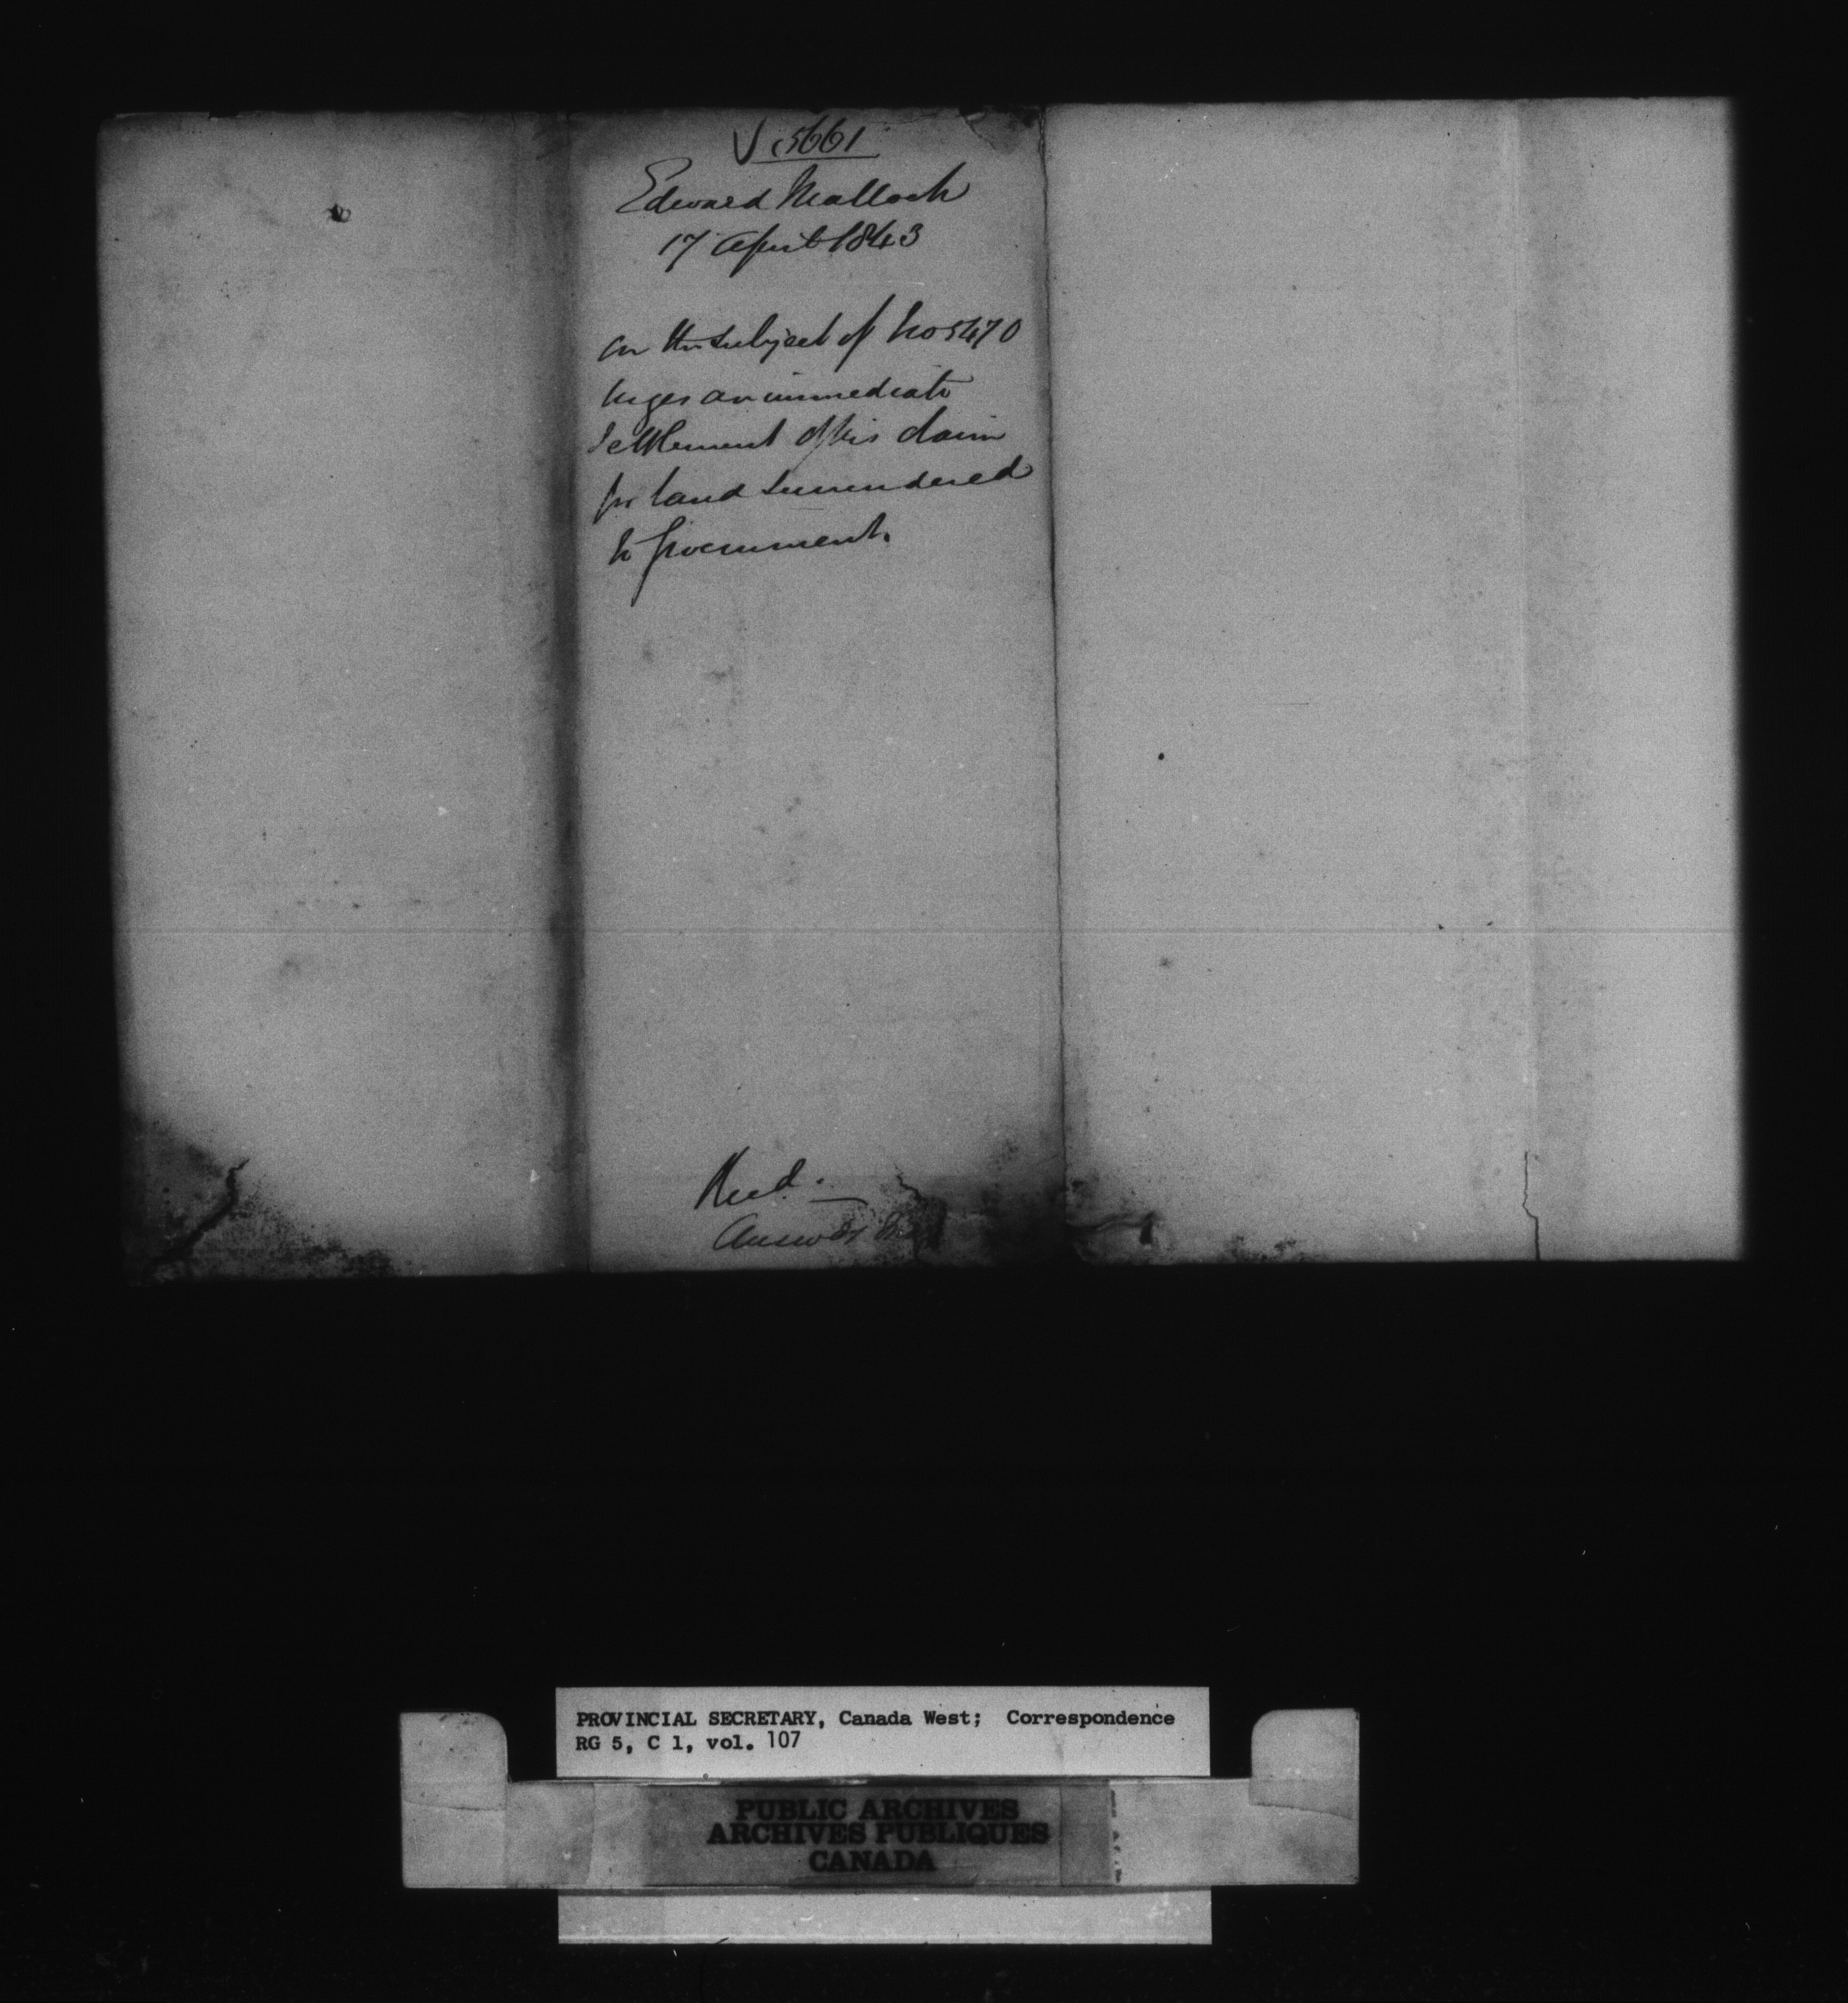 √ 5661
Edward Malloch
17 April 1843
on the subject of No 5470
urges an immediate
settlement of his claim
for land surrendered
to Government.
Answer
PROVINCIAL SECRETARY, Canada West; Correspondence
RG 5, C 1, vol. 107
PUBLIC ARCHIVES
ARCHIVES PUBLIQUES
CANADA